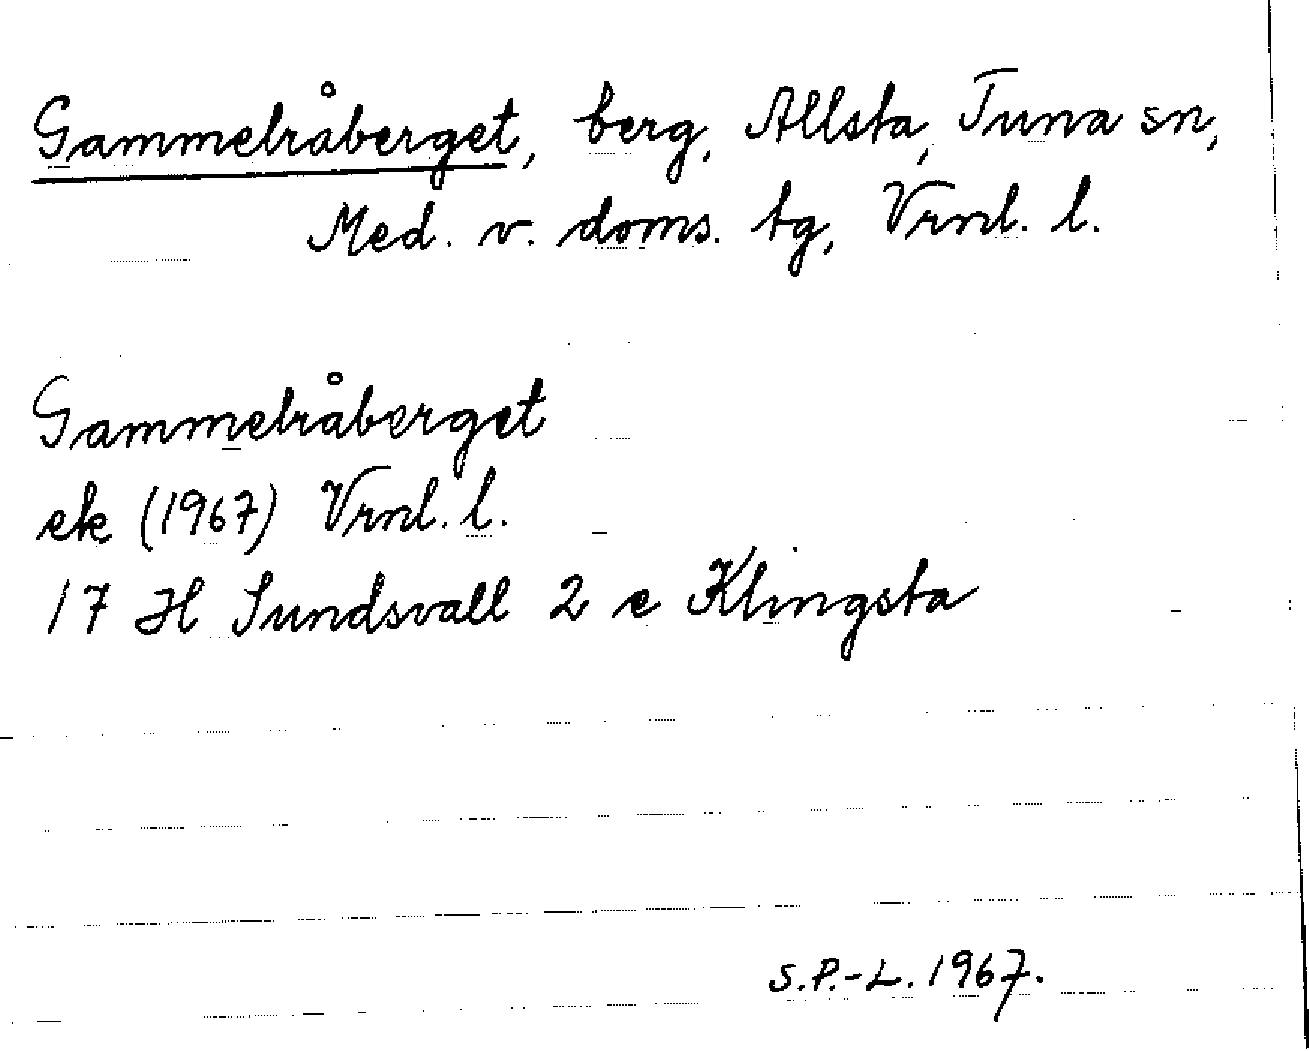 Gammelråberget, berg, Allsta, Tuna sn,
Med. v. doms. tg, Vrnl. l.
Gammelråberget
ek (1967) Vrnl. l.
17 H Sundsvall 2 e Klingsta
S.P.-L. 1967.